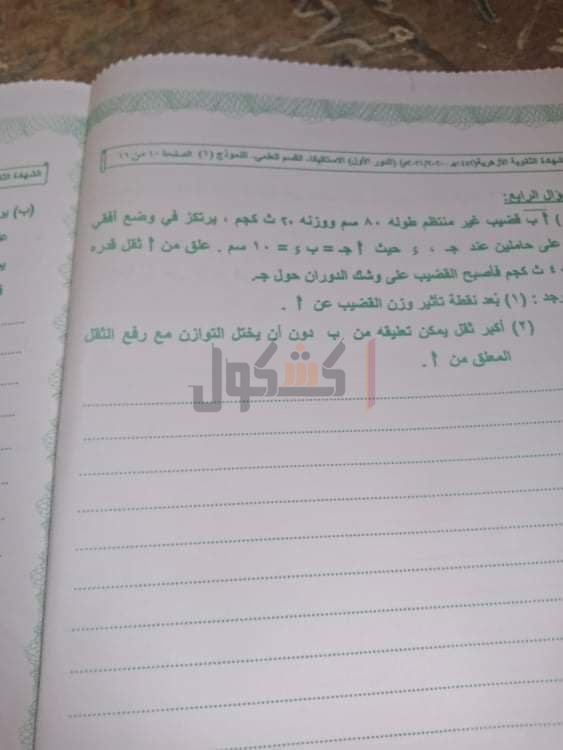 الشهادة الثا
(ب) بر
الشهادة الثانوية الأزهرية (الدور الأول) الاستاتيكا. القسم العلمي. النموذج (٦) الصفحة ١٠ من ١٦
الرابع:
) أ ب قضيب غير منتظم طوله ٨٠ سم ووزنه ٢٠ ث كجم ، يرتكز في وضع أفقي
على حاملين عند جـ ، ء حيث أ جـ = ب ء = ١٠ سم . علق من أ ثقل قدره
٤ ث كجم فأصبح القضيب على وشك الدوران حول جـ
(١) بُعد نقطة تأثير وزن القضيب عن أ .
(٢) أكبر ثقل يمكن تعليقه من ب دون أن يختل التوازن مع رفع الثقل
المعلق من أ .
كشكول